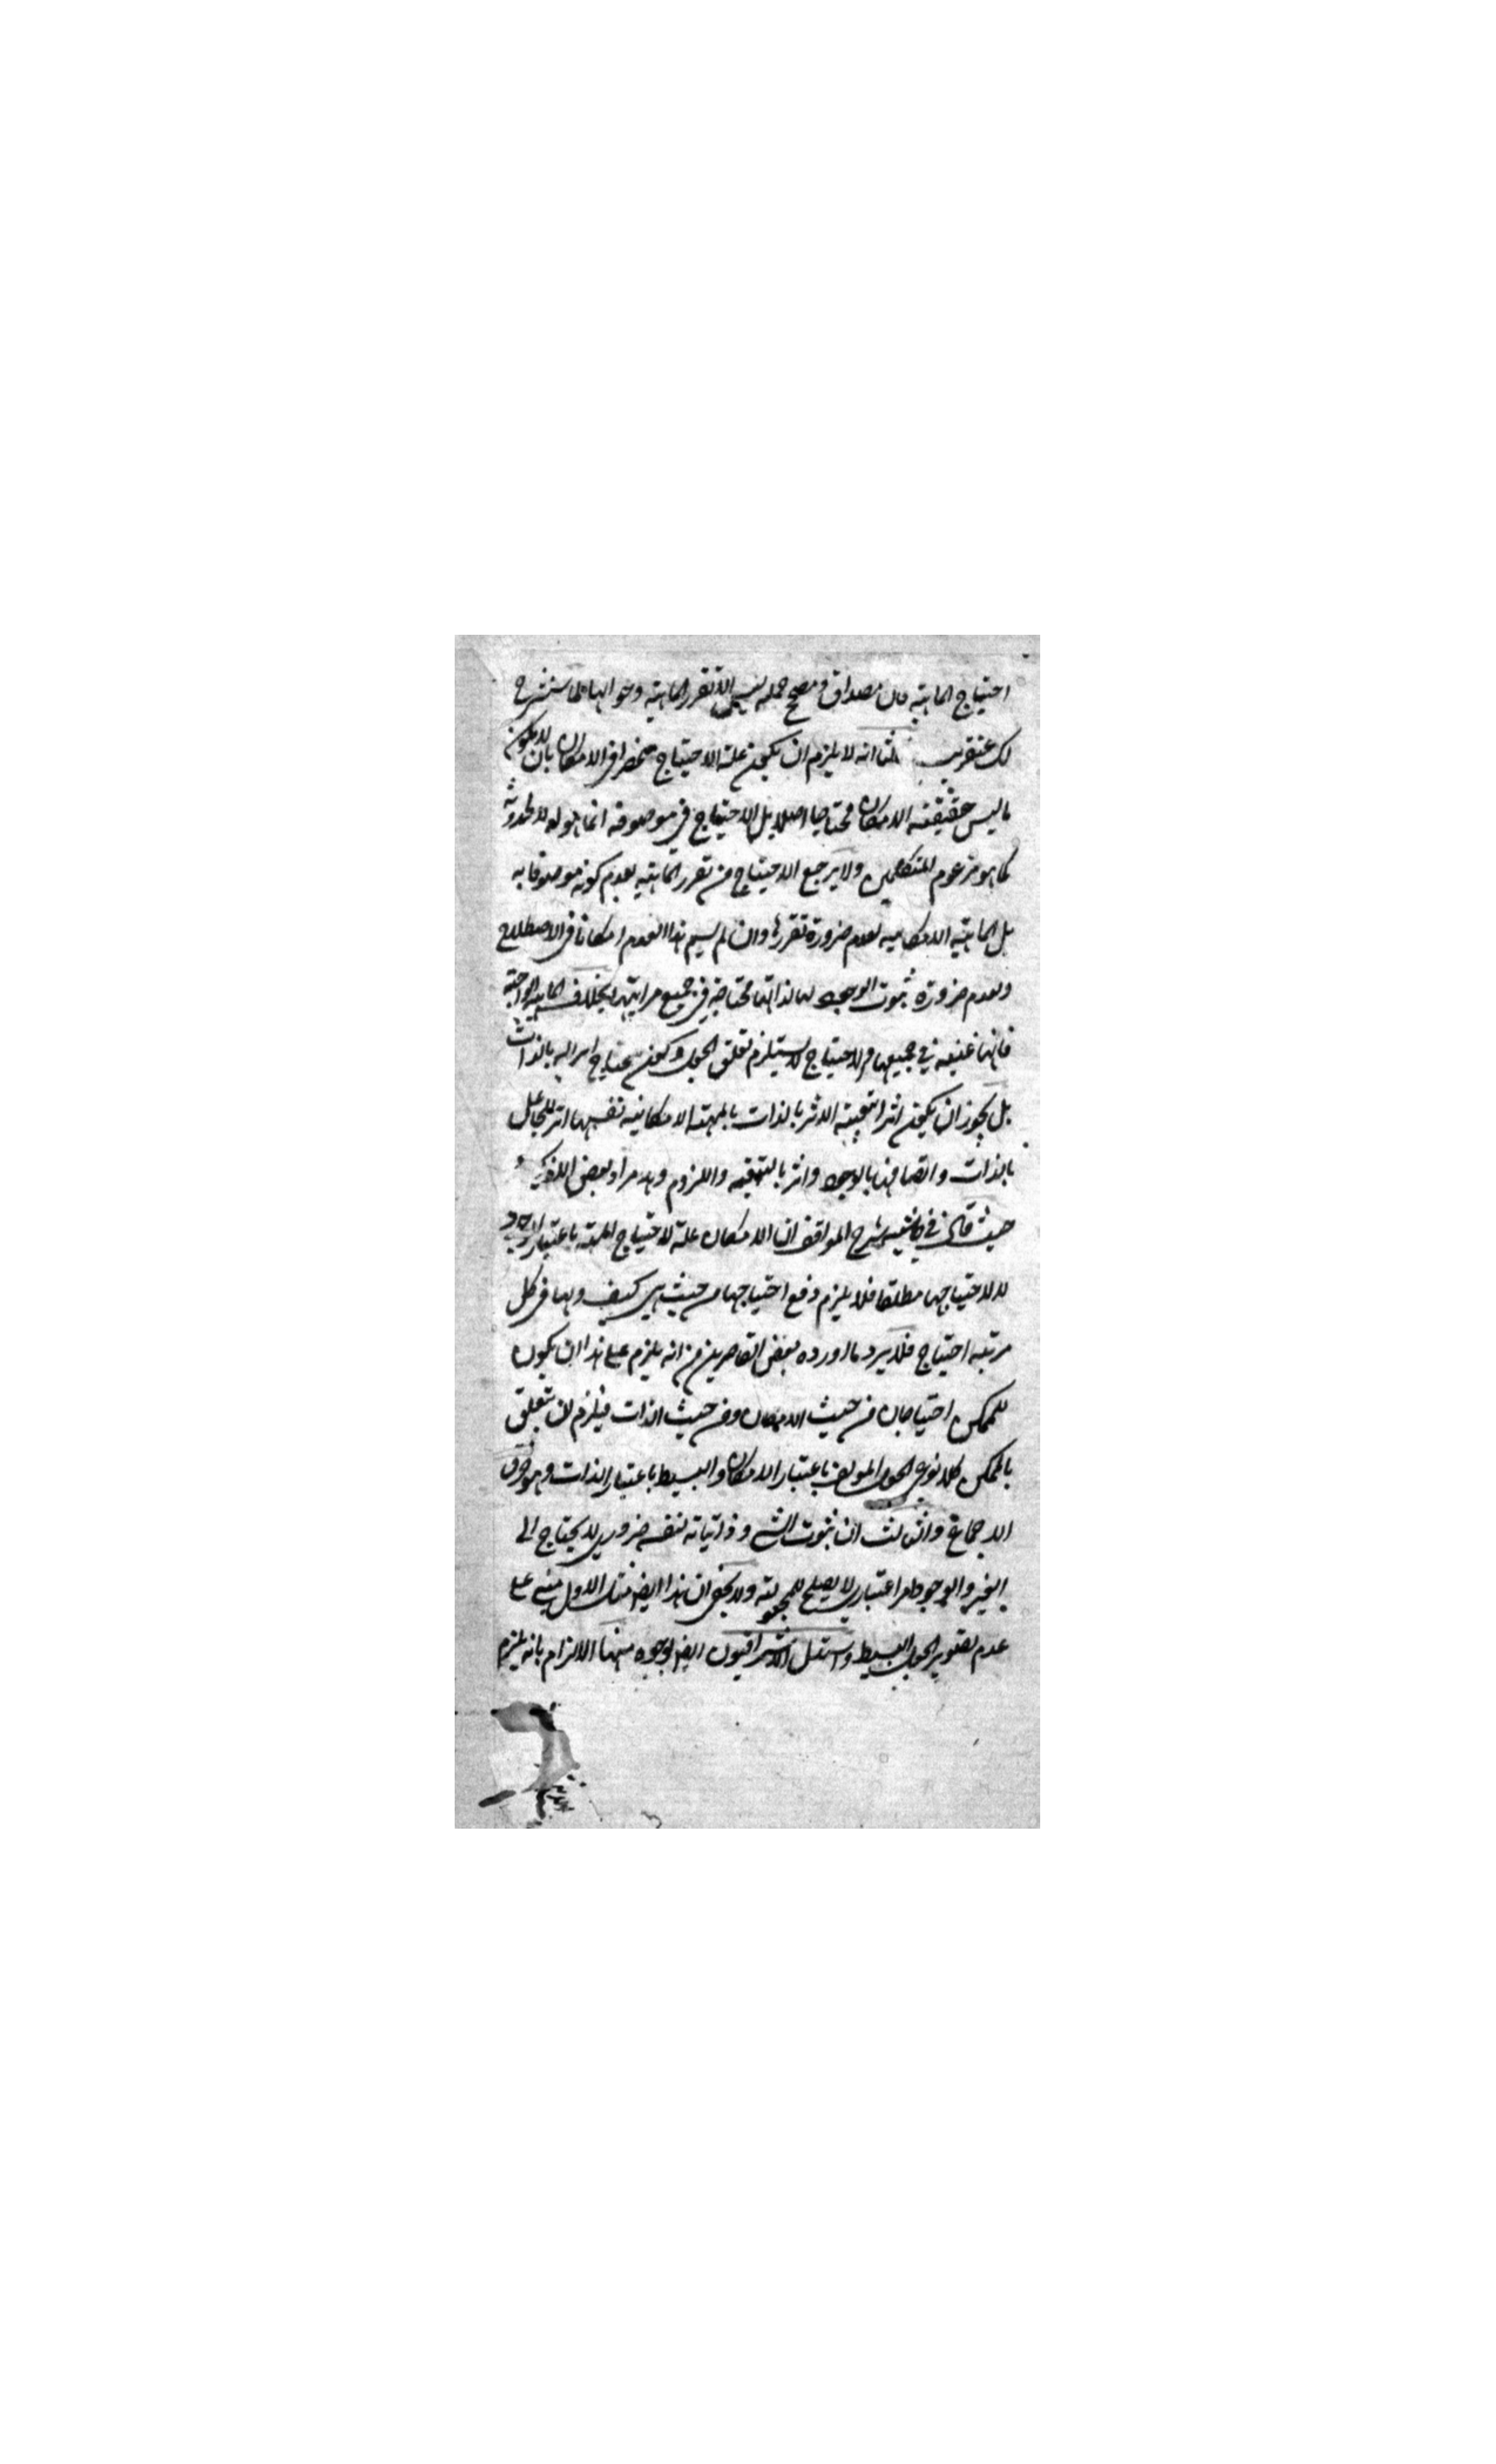 احتياج الماهية فان مصداقه ومصحح حمله ليس الا تقرر الماهية ونحوالها كما سنشرح
لك عنقريب الثاانه لا يلزم ان يكون علة الاحتياج منحصرا في الامكان بان لا يكون
ما ليس حقيقته الامكان محتاجا اصلا بل الاحتياج في موصوفه انما هو له لا لحدوثه
كما هو مزعوم المتكلمين ولا يرجع الاحتياج من تقرر الماهية لعدم كونه موصوفا به
بل الماهية الامكانيه لعدم ضرورة تقررها وان لم يسم هذا العدم امكانا في الاصطلاح
ولعدم ضرورة ثبوت الوجود لها لذاتها محتاجة في جميع مراتبها بخلاف الماهية الواجبة
فانها غنية في جميعها والاحتياج لا يستلزم تعلق الجعل وكون المحتاج اثرا له بالذات
بل يجوز ان يكون اثرا بتبعية الاثر بالذات بالمهية الامكانية نفسها اثر للجاعل
بالذات واتصافها بالوجود واثر بالتبعية واللزوم وهو مراد بعض الاذكياء
حيث قال في حاشية شرح المواقف ان الامكان علة لاحتياج المهية باعتبار الوجود
لا لاحتياجها مطلقا فلا يلزم دفع احتياجها من حيث هي كيف ولها في كل
مرتبه احتياج فلا يرد ما اورده بعض القاصرين من انه يلزم على هذا ان يكون
للممكن احتياجان من حيث الامكان ومن حيث الذات فيلزم ان يتعلق
بالممكن كلا نوعي الجعل المولف باعتبار الامكان والبسيط باعتبار الذات وهو خرق
الاجماع والثالث ان ثبوت الشي وذاتياته لنفسه ضروري لا يحتاج الى
الغير والوجود امر اعتباري لا يصلح للمجعولية ولا يخفى ان هذا ايضا مثل الاول مبني على
عدم تصوير الجعل البسيط واستدل الاشراقيون ايضا بوجوه منها الالزام بانه يلزم